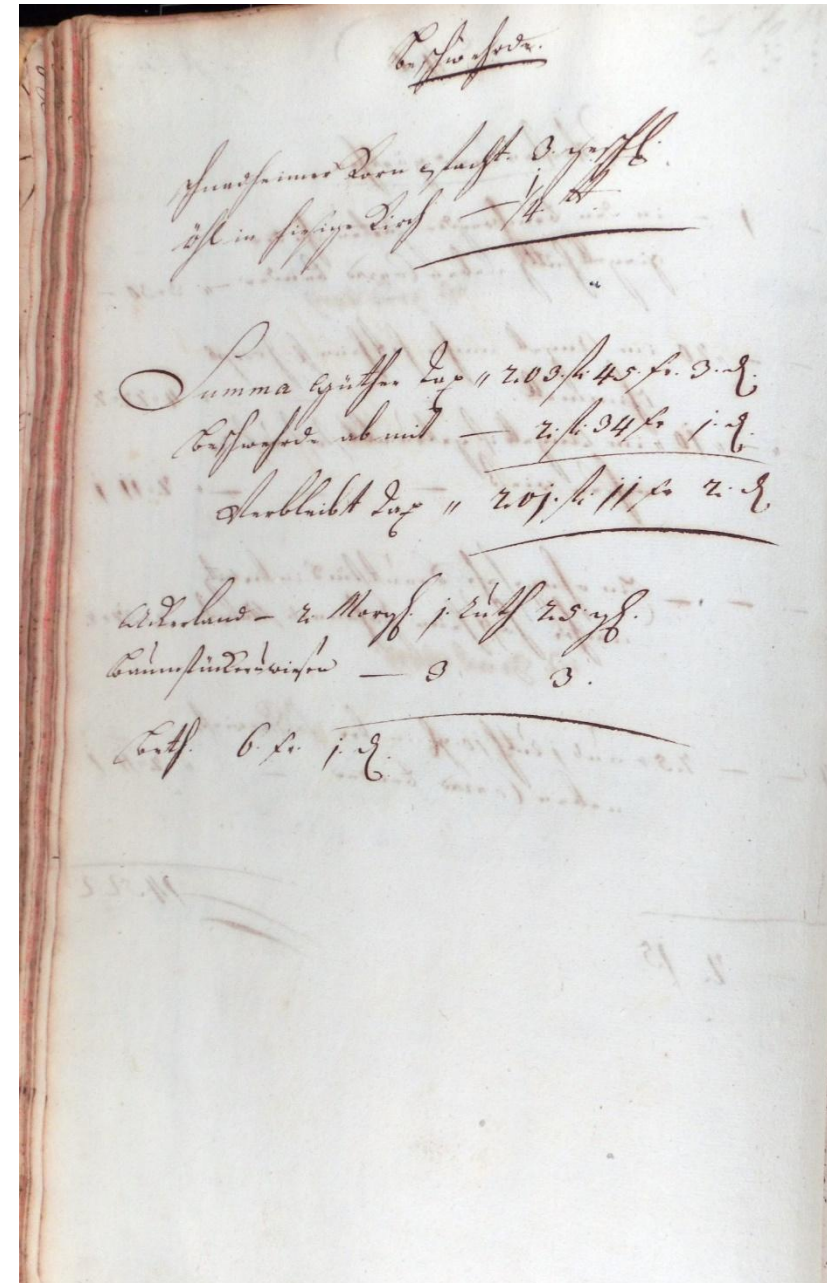 Beschwehrde.
schnadheimer Korn pfacht 3. geschl.
öhl in hiesige Kirch — 1/4 ℔
Summa Güther Tax „ 203. fl. 45. xr. 3. ₰.
Beschwehrde ab mit — 2. fl. 34 xr 1. ₰.
Verbleibt Tax „ 201. fl. 11 xr 2. ₰
Ackerland — 2. Morgh. 1. Ruth 25
Baumstücker wiesen — 3 3.
Beth. 6. xr. 1. ₰.